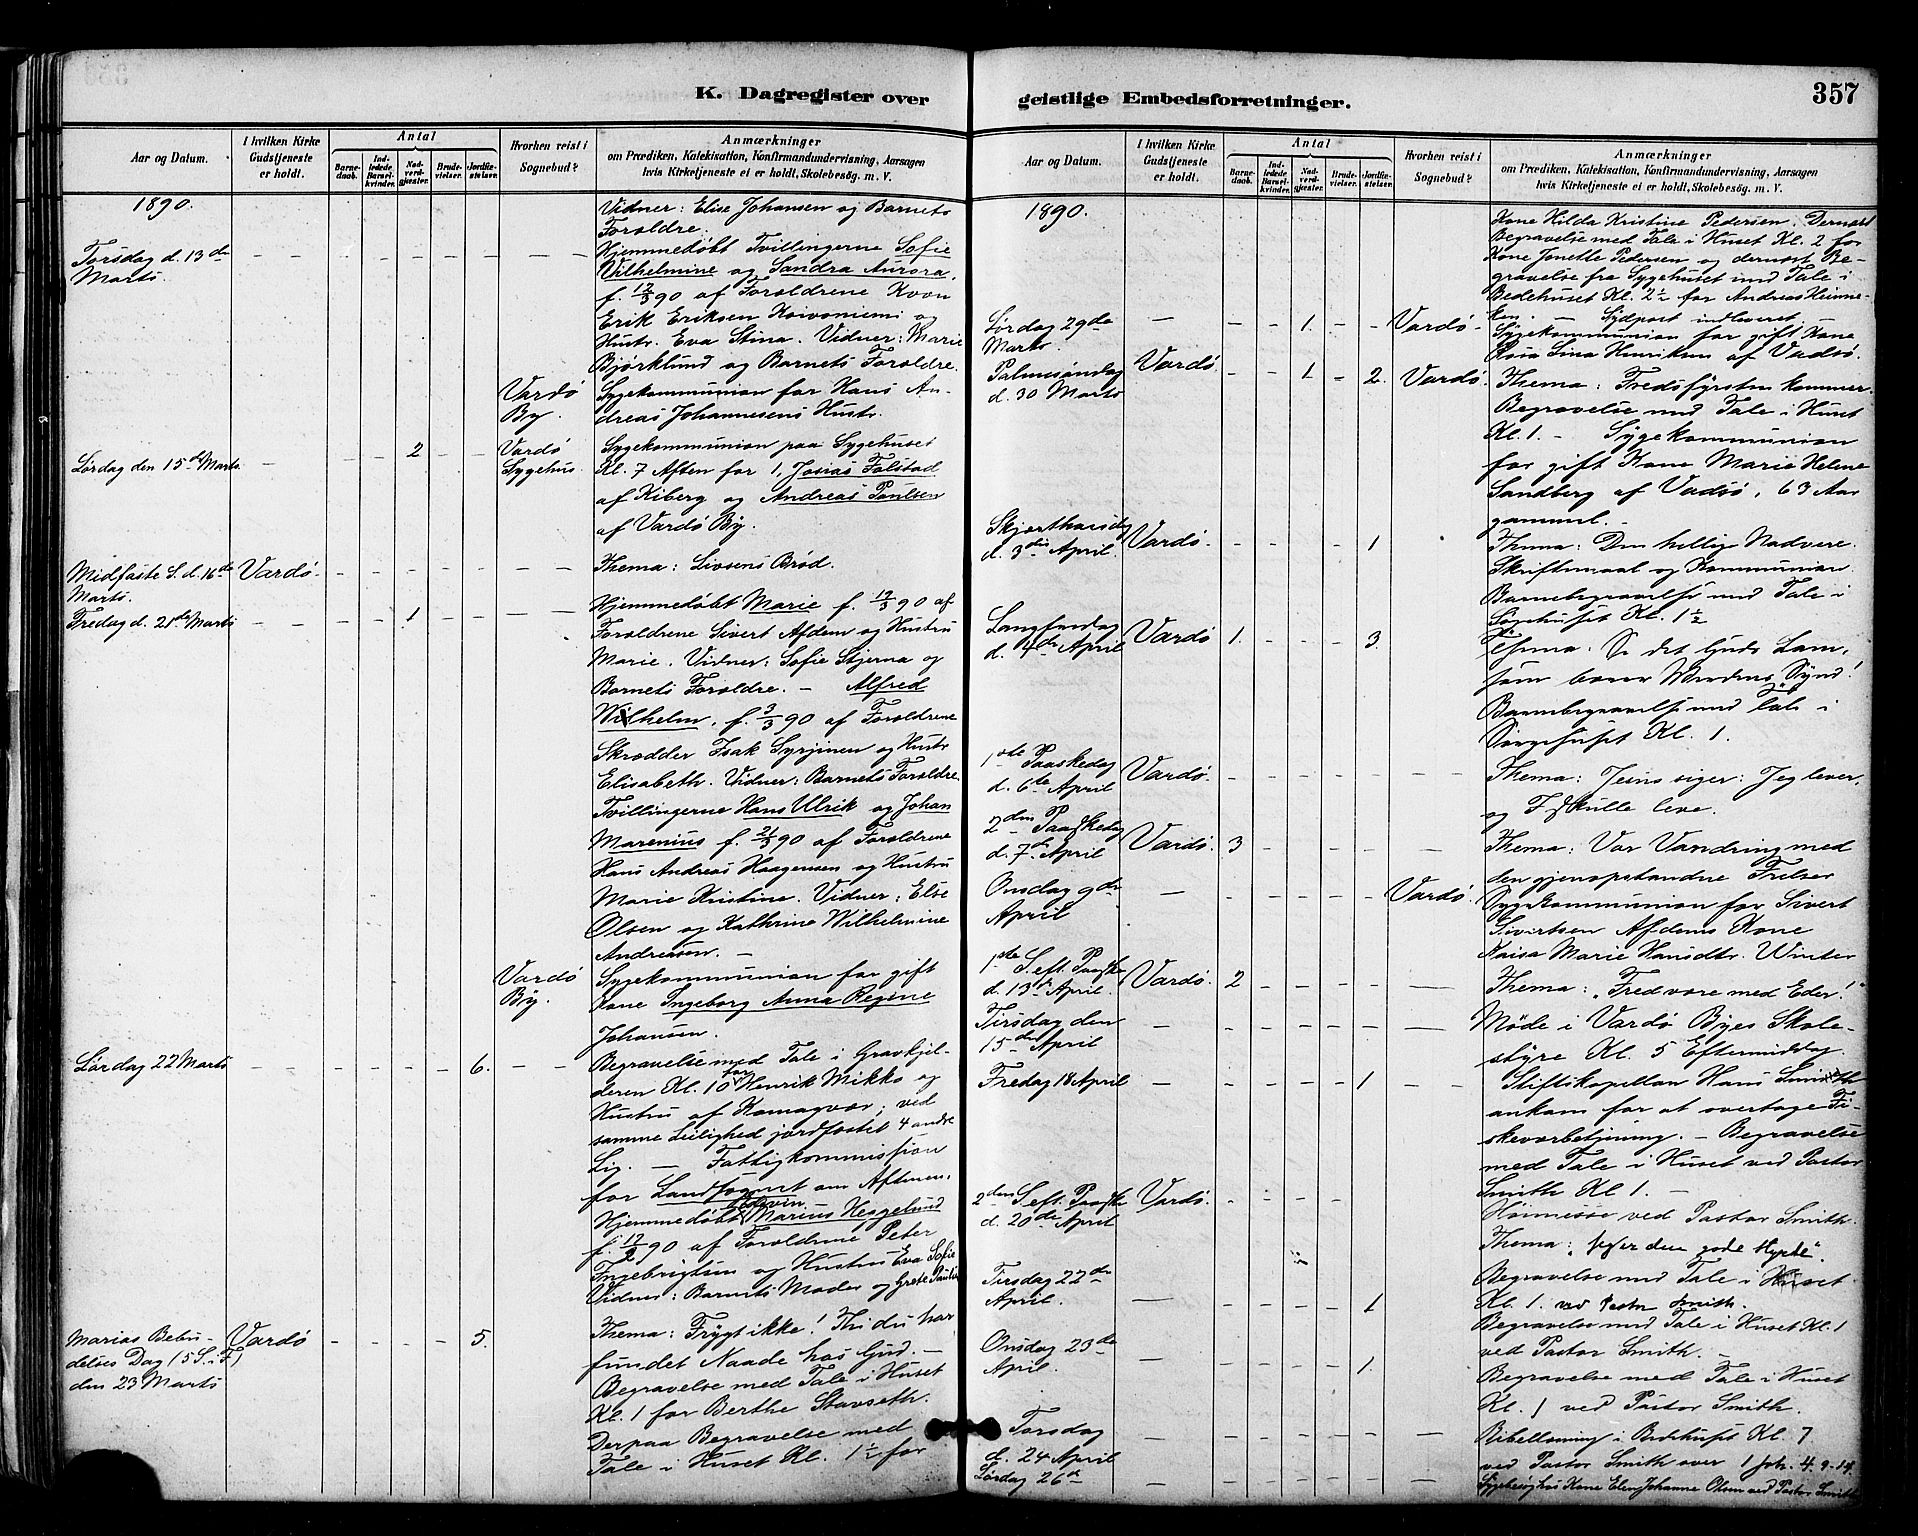 K. Dagregister over
Aar og Datum.
I hvilken Kirke Gudstjeneste er holdt.
Antal
Barne-daab.
Ind-ledede Barsel-kvinder.
Nad-verd-gjester.
Brude-vielser.
Jordfæ-stelser.
Hvorhen reist i Sognebud?
Anmærkninger
om Prædiken, Katekisation, Konfirmandundervisning, Aarsagen
hvis Kirketjeneste ei er holdt, Skolebesøg. m. V.
1890.
Vidner: Elise Johansen og Barnets
Forældre.
Torsdag d. 13de
Marts.
Hjemmedøbt Tvillingerne Sofie
Vilhelmine og Sandra Aurora,
f. 12/3 90 af Forældrene Kvæn
Erik Eriksen Koivoniemi og
Hustr. Eva Stina. Vidner: Marie
Bjørklund og Barnets Forældre.
Vardø
By.
Sygekommunion for Hans An-
dreas Johannesens Hustr.
Lørdag den 15de Marts. - - - 2 - -
Vardø
Sygehus.
Sygekommunion paa Sygehuset
Kl. 7 Aften for 1, Josias Falstad
af Kiberg og Andreas Paulsen
af Vardø By.
Midfaste S. d. 16de
Marts.
Vardø.
Thema: Livsens Brød.
Fredag d. 21de Marts - - - 1 - -
Hjemmedøbt Marie f. 19/3 90 af
Forældrene Sivert Afdem og Hustru
Marie. Vidner: Sofie Stjerna og
Barnets Forældre. - Alfred
Wilhelm, f. 3/3 90 af Forældrene
Skrædder Isak Syrjinen og Hustr
Elisabeth. Vidner: Barnets Forældre.
Tvillingerne Hans Ulrik og Johan
Marenius f. 21/3 90 af Forældrene
Hans Andreas Haagensen og Hustru
Marie Kristine. Vidner: Else
Olsen og Kathrine Wilhelmine
Andreasen. -
Vardø
By.
Sygekommunion for gift
Kone Ingeborg Anna Regine
Johansen.
Lørdag 22 Marts - - - - - 6.
Begravelse med Tale i Gravkjel-
deren Kl. 10 for Henrik Mikko og
Hustru af Komagvær; ved
samme Leilighed jordfæstet 4 andre
Lig. - Fattigkommission
for Landsognet om Aftenen.
Hjemmedøbt Marius Heggelund
f. 17/2 90 af Forældrene Peter
Ingebrigtsen og Hustru Eva Sofie
Vidner: Barnets Moder og Grete
Marias Bebu-
delses Dag (5 S. i F)
den 23 Marts
Vardø - - - - 5.
Thema: Frygt ikke! Thi du har
fundet Naade hos Gud. -
Begravelse med Tale i Huset
Kl. 1 for Berthe Stavseth.
Derpaa Begravelse med
Tale i Huset Kl. 1½ for
geistlige Embedsforretninger.
357
Aar og Datum.
I hvilken Kirke Gudstjeneste er holdt.
Antal
Barne-daab.
Ind-ledede Barsel-kvinder.
Nad-verd-gjester.
Brude-vielser.
Jordfæ-stelser.
Hvorhen reist i Sognebud?
Anmærkninger
om Prædiken, Katekisation, Konfirmandundervisning, Aarsagen
hvis Kirketjeneste ei er holdt, Skolebesøg. m. V.
1890.
Kone Hilda Kristine Pedersen. Dernæst
Begravelse med Tale i Huset Kl. 2 for
Kone Jonette Pedersen og dernæst Be-
gravelse fra Sygehuset med Tale i
Bedehuset Kl. 2½ for Andreas Heinne-
ken. - Sydpost indleveret -
Lørdag 29de
Marts.
- - - 1. - - Vardø.
Sygekommunion for gift Kone
Lina Henriksen af Vadsø.
Palmesøndag
d. 30 Marts
Vardø. - - 1 - 2. Vardø.
Thema: Fredsfyrsten kommer.
Begravelse med Tale i Huset
Kl. 1. - Sygekommunion
for gift Kone Marie Helene
Sandberg af Vadsø, 63 Aar
gammel. -
Skjærthorsdag
d. 3die April.
Vardø. - - - - 1
Thema: Den hellig Nadvere.
Skriftemaal og Kommunion.
Barnebegravelse med Tale i
Sygehuset Kl. 1½
Langfredag
d. 4de April
Vardø 1. - - - 3.
Thema: Se det Guds Lam,
som bærer Verdens Synd!
Barnebegravelse med Tale i
Sørgehuset Kl. 1.
1ste Paaskedag
d. 6te April
Vardø.
Thema: Jesus siger: Jeg lever,
og I skulle leve.
2den Paaskedag
d. 7de April
Vardø. 3
Thema: Vor Vandring med
den gjenopstandne Frelser
Onsdag 9de
April
Vardø.
Sygekommunion for Sivert
Sivertsen Afdems Kone
Kaisa Marie Hansdtr. Winter
1ste S. eft. Paaske
d. 13de April.
Vardø. 2
Thema: "Fred være med Eder!"
Tirsdag den
15de April
Møde i Vardø Byes Skole-
styre Kl. 5 Eftermiddag.
Fredag 18 April - - - - - 1
Stiftskapellan Hans Smith
ankom for at overtage Fi-
skeværbetjening. - Begravelse
med Tale i Huset ved Pastor
Smith Kl 1. -
2den S. eft. Paaske
d. 20de April
Vardø.
Høimesse ved Pastor Smith.
Thema: "Jeg er den gode Hyrde".
Tirsdag 22de
April.
1
Begravelse med Tale i Huset
Kl. 1. ved Pastor Smith.
Onsdag 23de
April.
1.
Begravelse med Tale i Huset Kl. 1
ved Pastor Smith. -
Begravelse med Tale i Huset
Kl. 1 ved Pastor Smith.
Torsdag
d. 24 April
Bibellæsning i Bedehuset Kl. 7
ved Pastor Smith over 1 Joh. 4. 9-14.
Lørdag 26de
Sygebesøg hos Kone Elen Johanne Olsen ved Pastor Smith